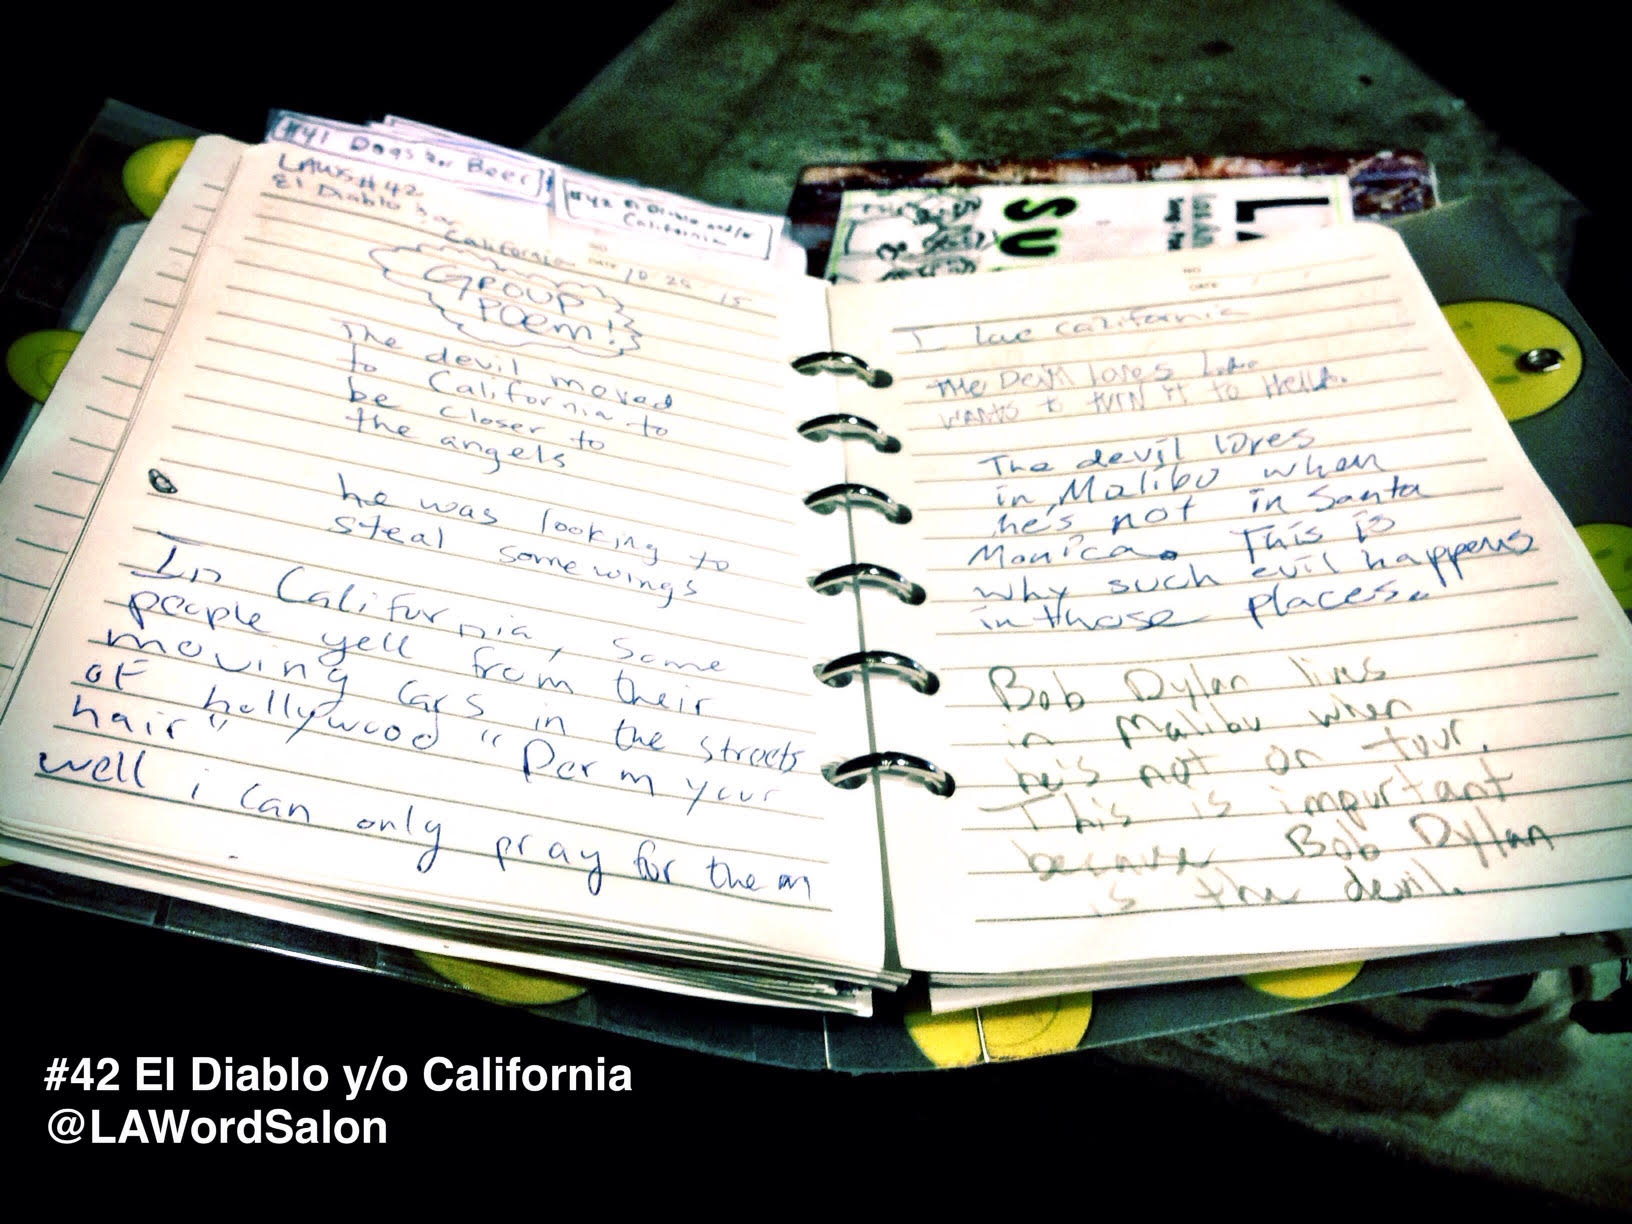 #41 Dogs &/or Beer
#42 El Diablo and/or
California
LAWS #42
El Diablo &/or
California
NO
DATE 10 28 15
GROUP
POEM!
The devil moved
to California to
be closer to
the angels
he was looking to
steal some wings
In California, some
people yell from their
moving cars in the streets
of hollywood "Perm your
hair"
well i can only pray for them
SU
LA
NO
DATE
I love california
The Devil loves
wants to turn it to Hell.
The devil lives
in Malibu when
he's not in Santa
Monica. This is
why such evil happens
in those places.
Bob Dylan lives
in Malibu when
he's not on tour.
This is important
because Bob Dylan
is the devil.
#42 El Diablo y/o California
@LAWordSalon